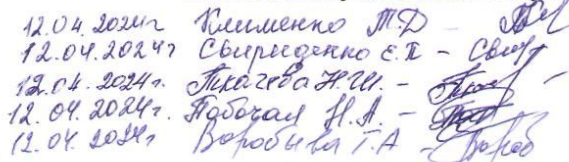 12.04.2024г Клименко Т.Д -
12.04.2024г Свириденко Е.П - Свир
12.04.2024г. Ткачева Н.Ш. -
12.04.2024г. Побочая Н.А. -
12.04.2024г Воробьева Т.А - Вороб